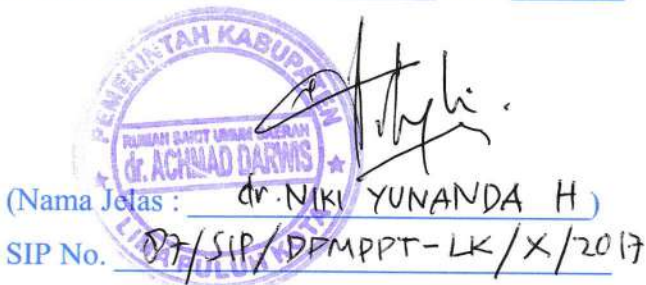 PEMERINTAH KABUPATEN
RUMAH SAKIT UMUM DAERAH
dr. ACHMAD DARWIS
LIMA PULUH KOTA
(Nama Jelas : dr. NIKI YUNANDA H )
SIP No. 87/SIP/DPMPPT-LK/X/2017